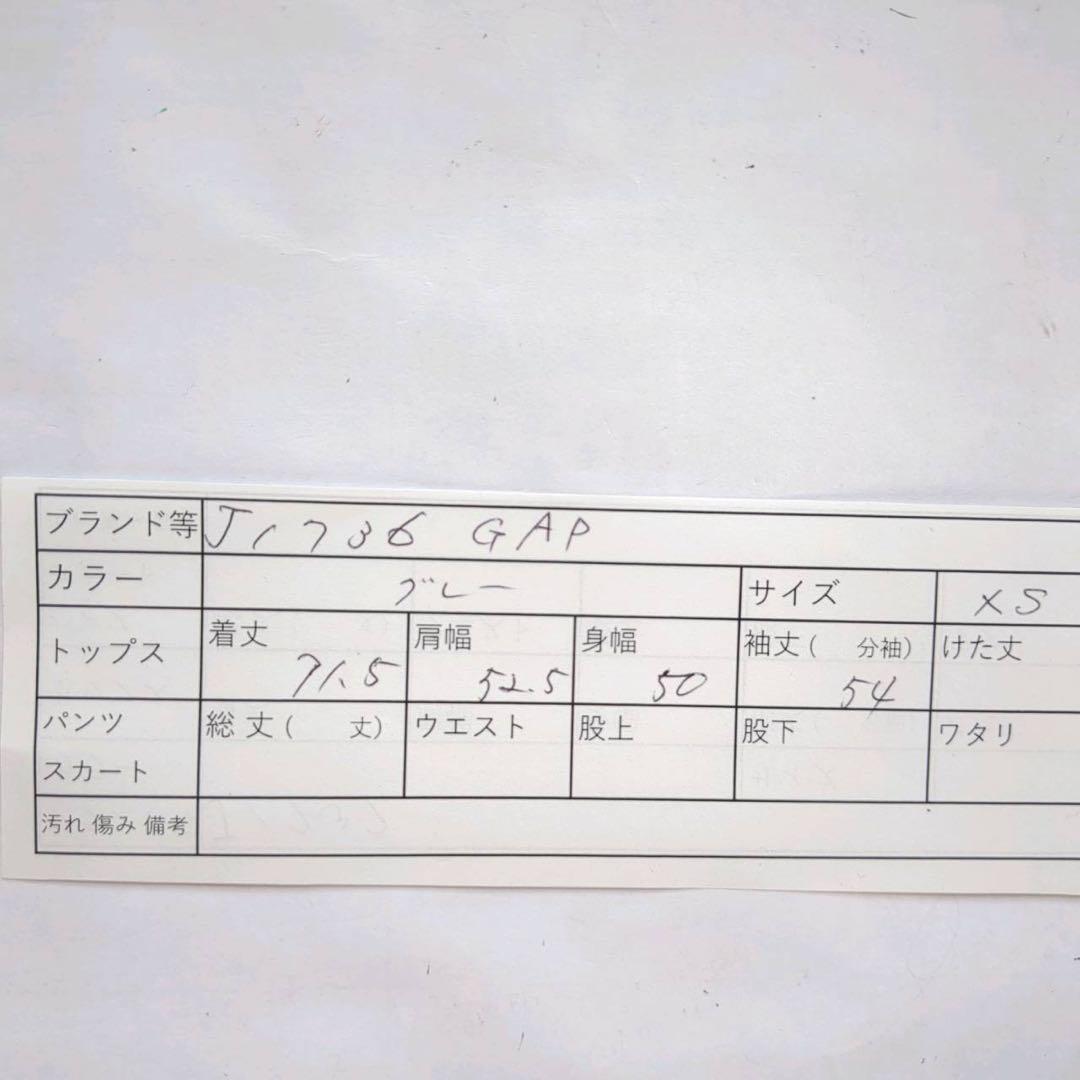 ブランド等 J1736 GAP
カラー グレー サイズ XS
トップス 着丈 71.5 肩幅 52.5 身幅 50 袖丈( 分袖) 54 けた丈
パンツ スカート 総丈( 丈) ウエスト 股上 股下 ワタリ
汚れ 傷み 備考